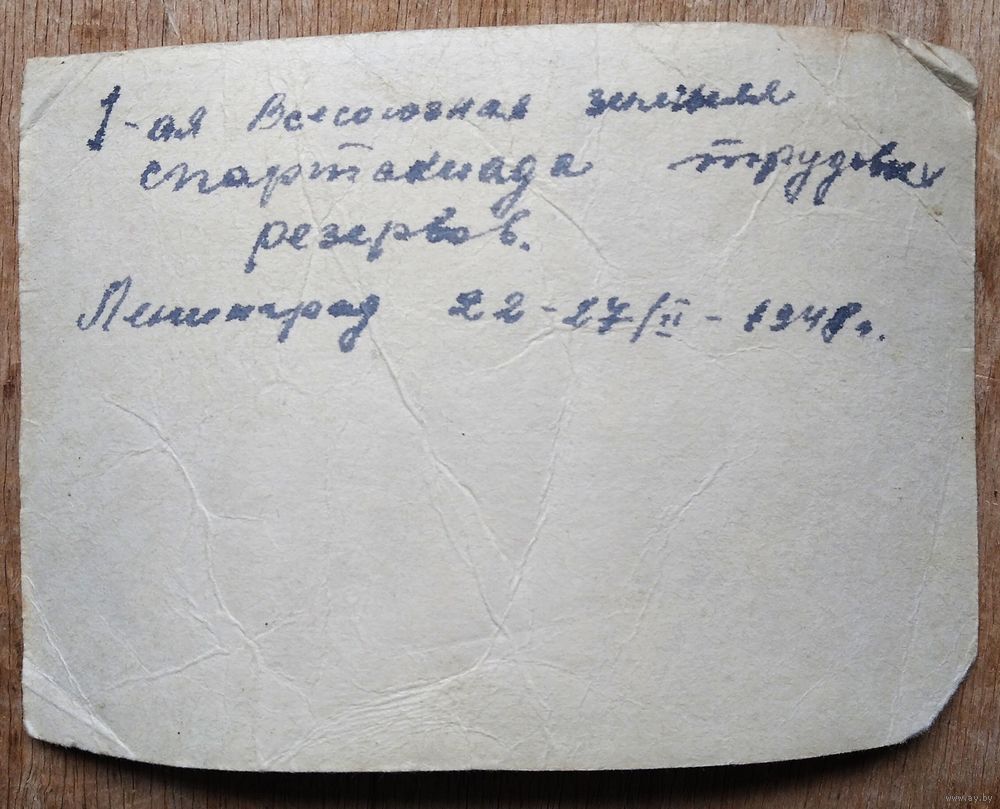 1-ая Всесоюзная зимняя
спартакиада трудовых
резервов.
Ленинград 22-27/II-1948г.
www.ay.by